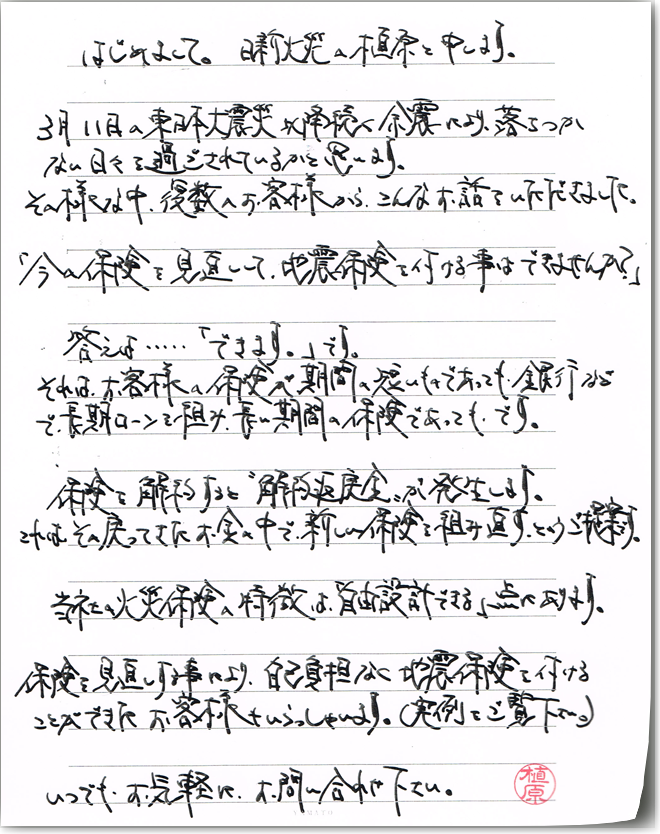 はじめまして。 日新火災の植原と申します。
3月11日の東日本大震災以降続く余震により、落ちつか
ない日々を過ごされているかと思います。
その様な中、複数のお客様から、こんなお話をいただきました。
「今の保険を見直しして、地震保険を付ける事はできませんか?」
答えは……「できます。」です。
それは、お客様の保険が期間の短いものであっても、銀行など
で、長期ローンを組み、長い期間の保険であっても、です。
保険を解約すると“解約返戻金”が発生します。
これは、その戻ってきたお金の中で、新しい保険を組み直す、というご提案です。
当社の火災保険の特徴は、「自由設計できる」点にあります。
保険を見直しする事により、自己負担なく地震保険を付ける
ことができたお客様もいらっしゃいます。(実例をご覧下さい)
いつでも、お気軽に、お問い合わせ下さい。
植原